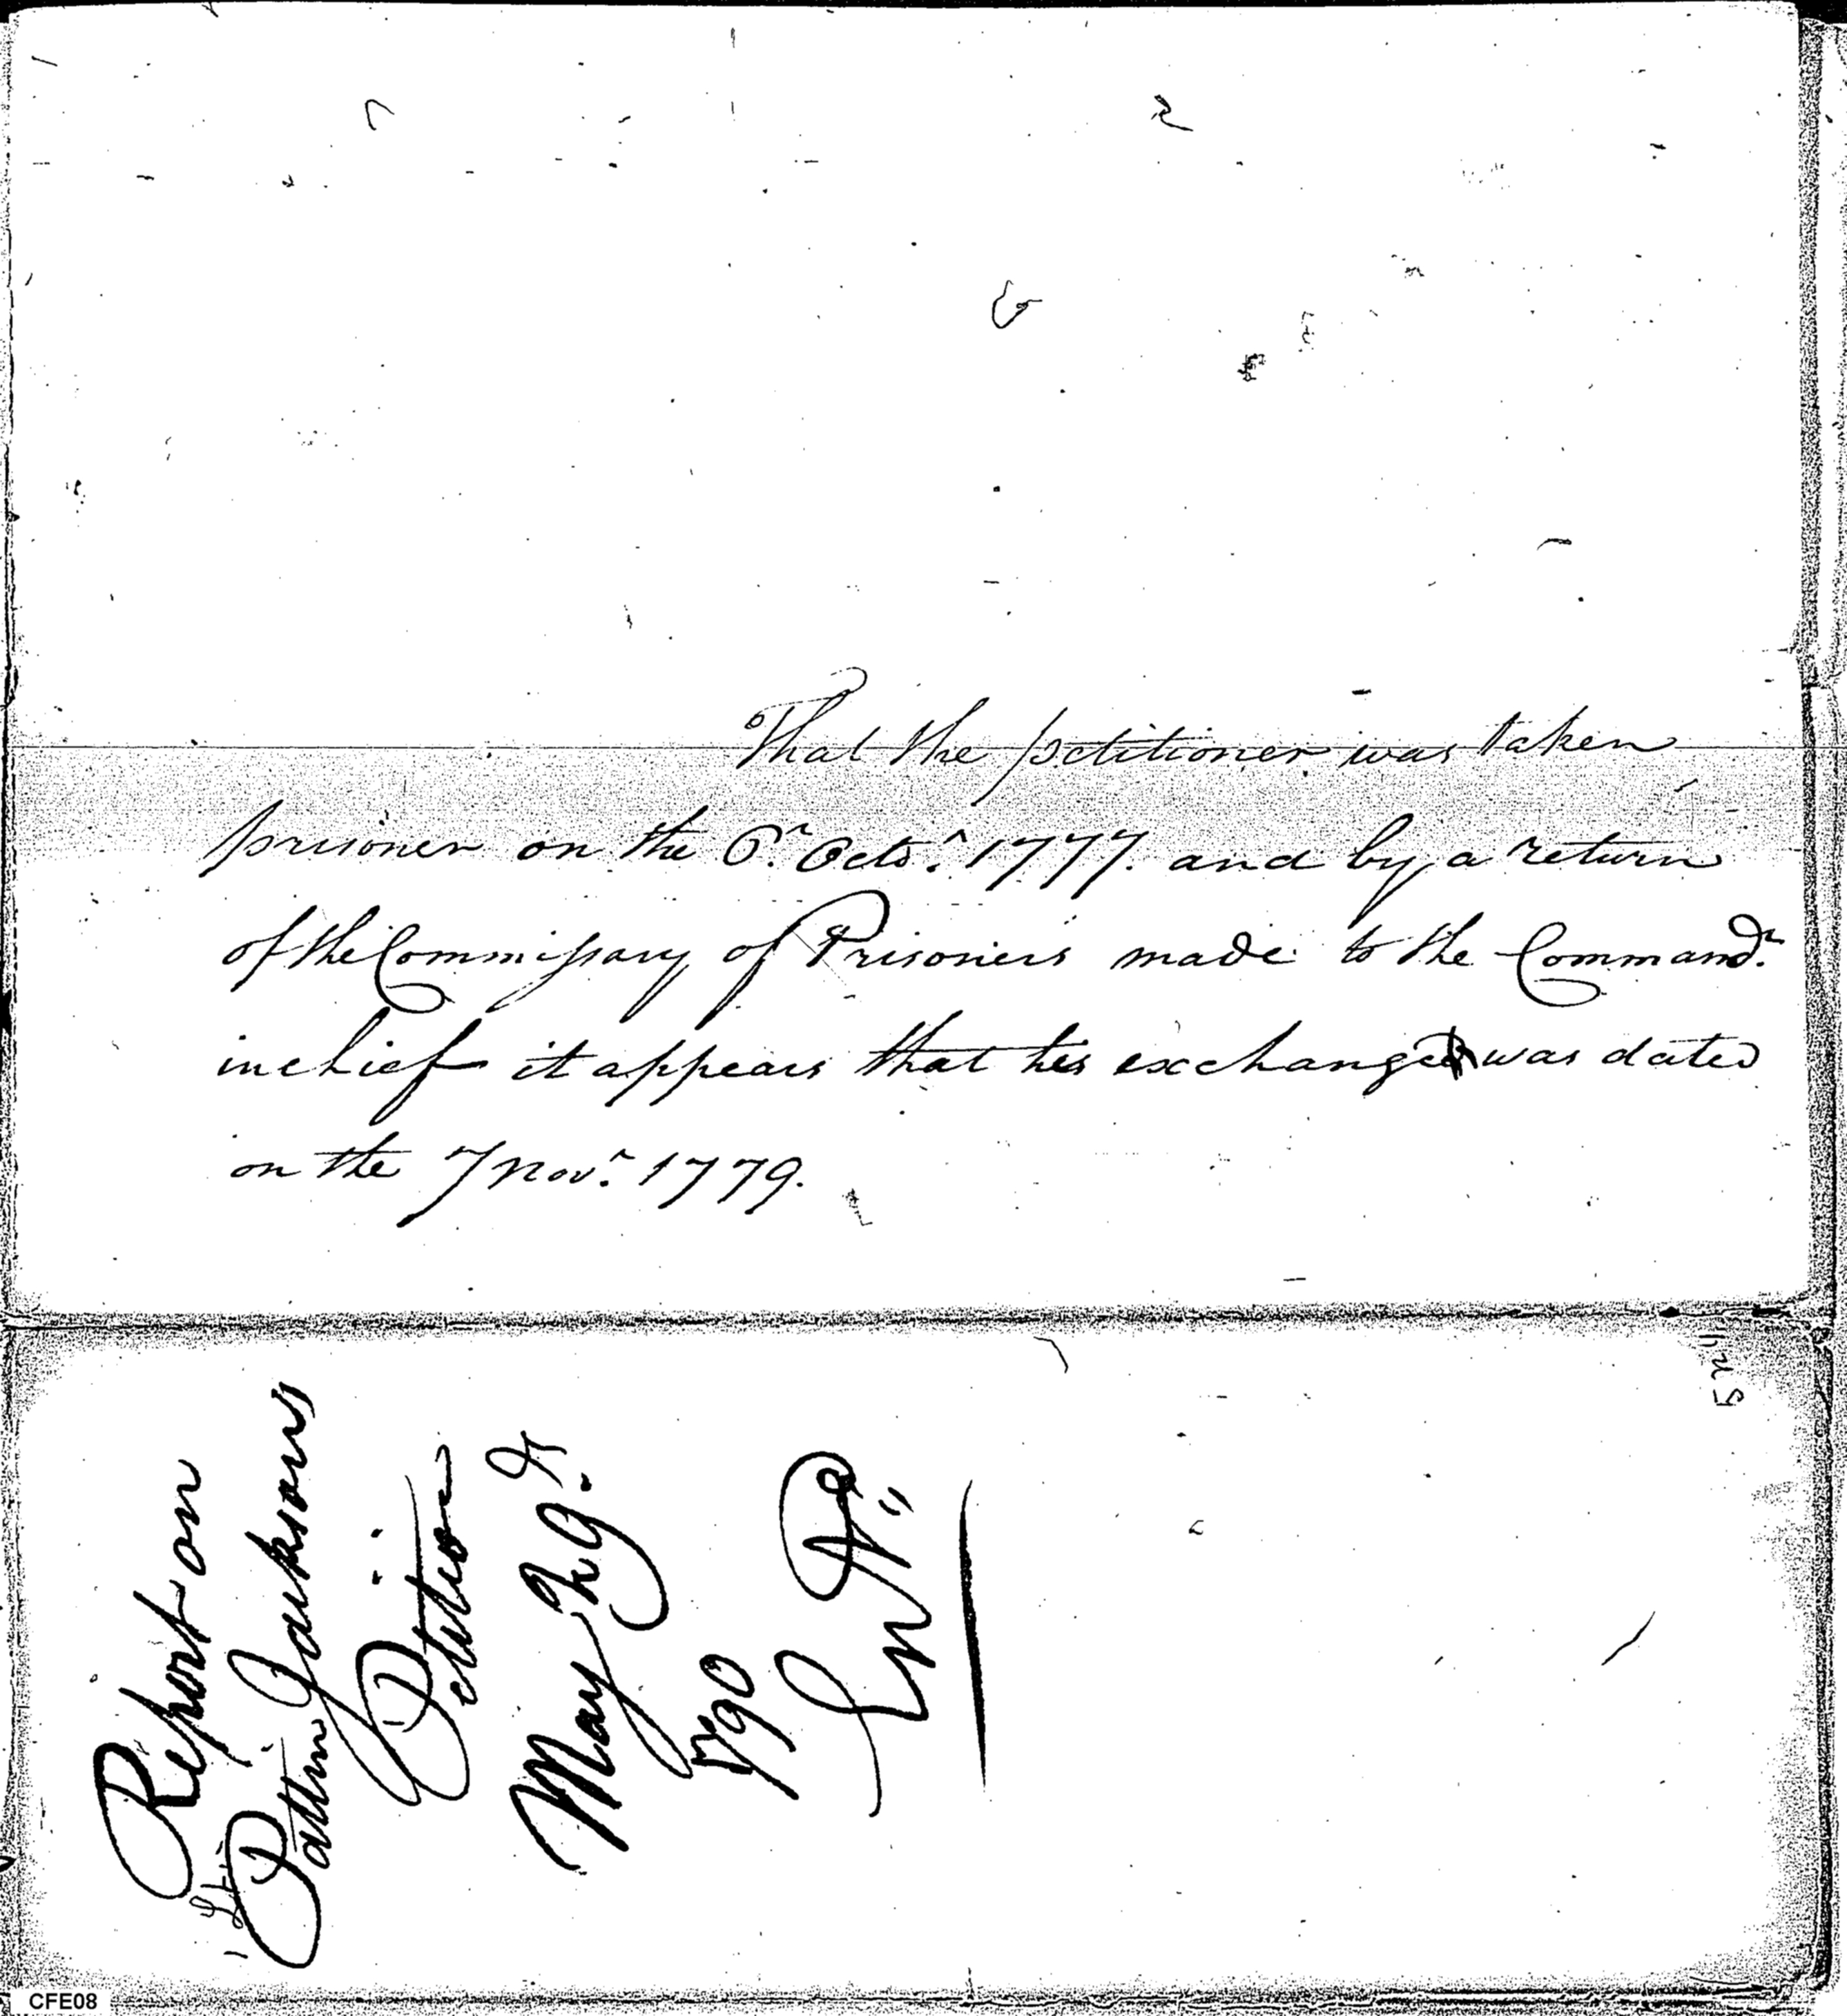 That the petitioner was taken
prisoner on the 6.r Octo.r 1777. and by a return
of the Commissary of Prisoners made to the Command.r
in chief it appears that his exchange was dated
on the 7 Nov.r 1779.
Report on
Lt. Pattin Jacksons
Petition
May 29.th
1790
CFE08